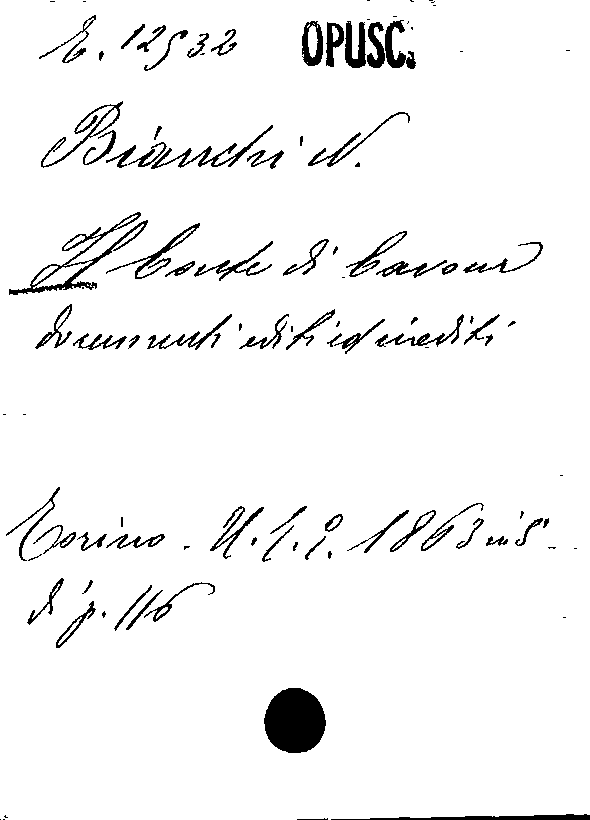 E. 12532 OPUSC.
Bianchi N.
Il Conte di Cavour
documenti editi ed inediti
Torino. U. T. E. 1863 in 8°
di p. 116